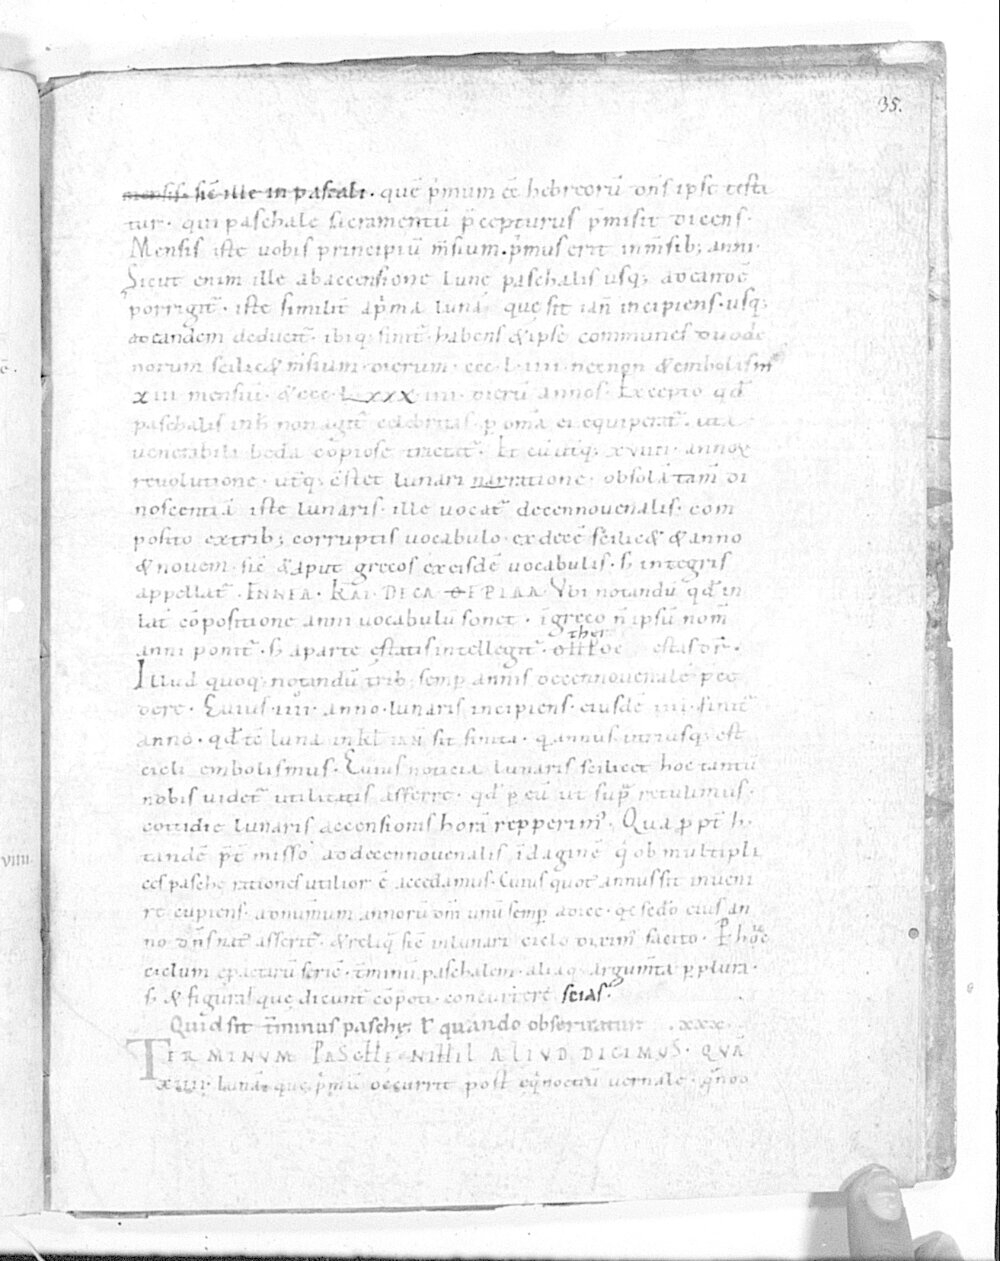 35.
mensis. sic̄ ille in pascali. quē p̄mum eē hebreorū dn̄s ipse testa
tur. qui paschale sacramentū p̄cepturus p̄misit dicens.
Mensis iste uobis principiū m̄sium. p̄mus erit in m̄sib; anni.
Sicut enim ille ab accensione lunę paschalis usq; ad eandē
porrigit᷑. iste similit᷑ a p̄ma luna que fit ian̄ incipiens. usq;
ad eandem deducit᷑. ibiq; finit᷑. habens & ipse communes duode
norum scilic& m̄sium. dierum. ccc. l. iiii. necnon & embolism̄
xiii mensiū. & ccc. lxxx. iiii. dierū annos. Excepto qd̄
paschalis in h̄ non agit᷑ celebritas. p om̄a ei equiperat᷑. uta
uenerabili beda cōpiose tractat᷑. Et cū utq; xviiii. annoꝝ
reuolutione. utq; cstet lunari narratione. obsolā tam̄ di
noscentiā iste lunaris. ille uocat᷑ decennouenalis. com
posito ex trib; corruptis uocabulo. ex decē scilic& & anno
& nouem. sic̄ & aput grecos ex eisdē uocabulis. s; integris
appellat᷑. ENNEA. KAI. DECA Ubi notandū qd̄ in
lat̄ cōpositione anni uocabulū sonet. ī greco n̄ ipsū nom̄
anni ponit᷑. s; a parte estatis intellegit᷑. ther estas dr̄.
Illud quoq; notandū trib; semp annis decennouenalē p̄ce
dere. Cuius. iiii. anno. lunaris incipiens. eiusdē iiii. finit᷑
anno. qd̄ tc̄ luna in kl̄ ian̄ sit finita. q̄ annus utriusq; est
cicli embolismus. Cuius noticia lunaris scilicet hoc tantū
nobis uidet᷑ utilitatis afferre. qd̄ p eū ut sup̄ retulimus.
cottidie lunaris accensionis horā repperim᷒. Qua ppt̄ h.
tandē p̄t misso ad decennouenalis īdaginē q̄ ob multipli
ces paschę rationes utilior ē accedamus. Cuius quot᷒ annus sit inueni
re cupiens. ad num̄um annorū dn̄i unū semp adice. qꝫ sedo eius an
no dn̄s nat᷒ asserit᷑. & reliq̄ sic̄ in lunari ciclo dixim᷒ facito. P hoc
ciclum epactarū seriē. t̄minū paschalem. aliaq; argum̄ta p plura.
s; & figuras que dicunt᷑ cōpoti. concurrere scias.
Quid sit t̄minus paschę. ł quando obseruatur. xxx.
TERMINUM PASCHE NIHIL ALIUD DICIMUS. QUĀ
xiiii. lunā. que p̄mū occurrit post eq̄noctiū uernale. q̄ndo